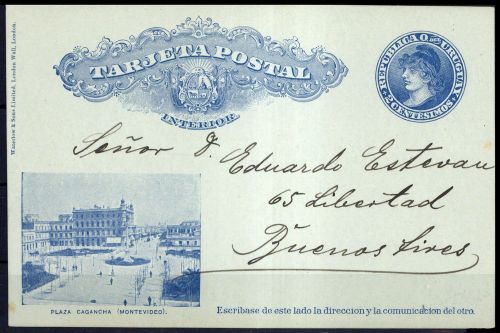 TARJETA POSTAL
INTERIOR
REPUBLICA O. DEL URUGUAY
2 CENTESIMOS 2
Waterlow & Sons Limited, London Wall, London.
Señor D. Eduardo Estevan
65 Libertad
Buenos Aires
PLAZA CAGANCHA (MONTEVIDEO).
Escríbase de este lado la direccion y la comunicacion del otro.